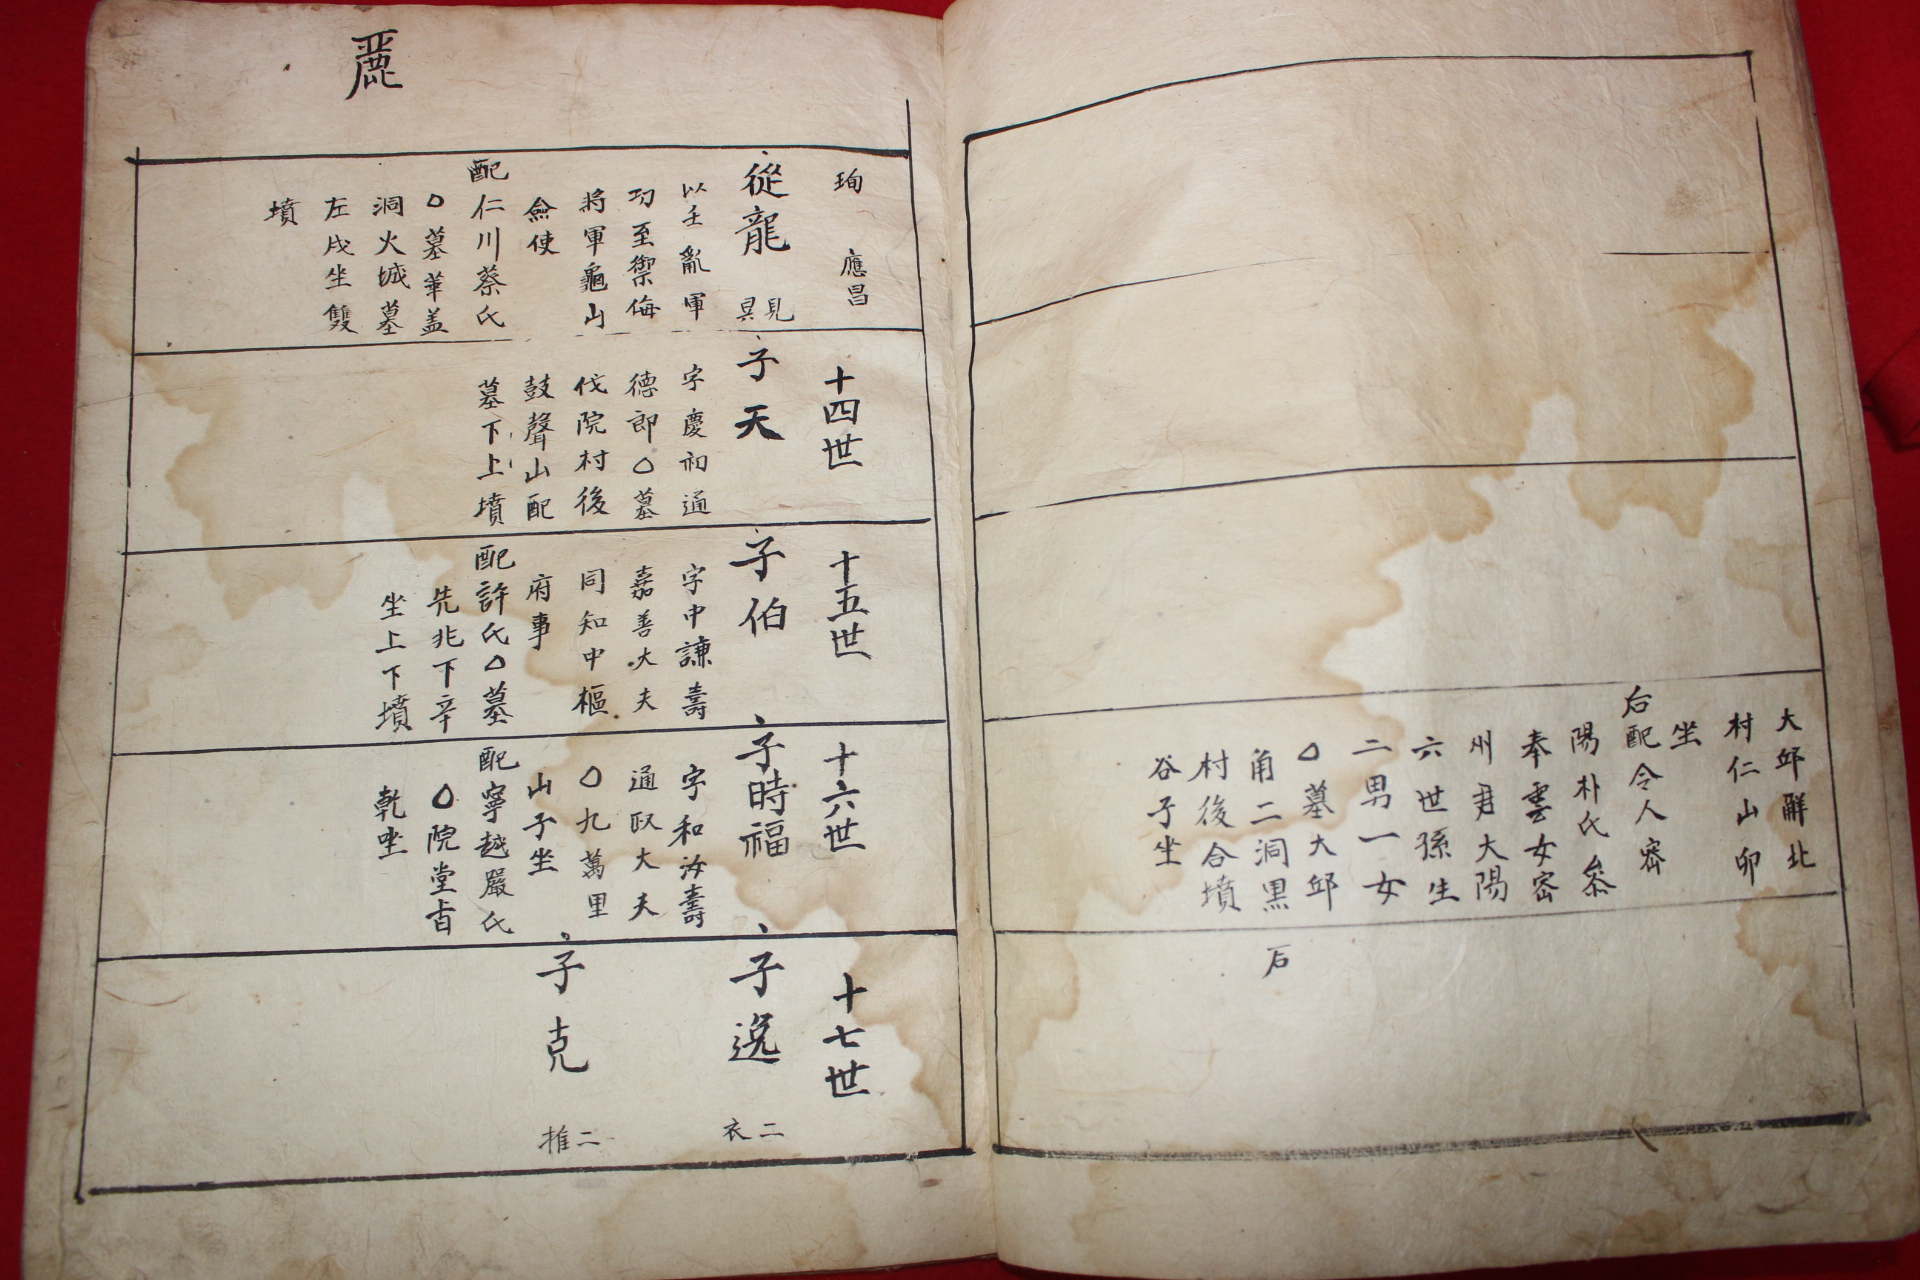 大邱解北
村仁山卯
坐
后配令人密
陽朴氏叅
奉雲女密
州君大陽
六世孫生
二男一女
○墓大邱
角二洞黒
村後合墳
谷子坐
后
麗
珣 應昌
從龍 見㫤
以壬亂軍
功至禦侮
將軍龜山
僉使
配仁川蔡氏
○墓華盖
洞火城墓
左戌坐雙
墳
十四世
子天
字慶初通
德郎○墓
伐院村後
鼓聲山配
墓下上墳
十五世
子伯
字中謙壽
嘉善大夫
同知中樞
府事
配許氏○墓
先兆下辛
坐上下墳
十六世
子時福
字和汝壽
通政大夫
○九萬里
山子坐
配寧越嚴氏
○院堂
乾坐
十七世
子逸
二衣
子克
二推